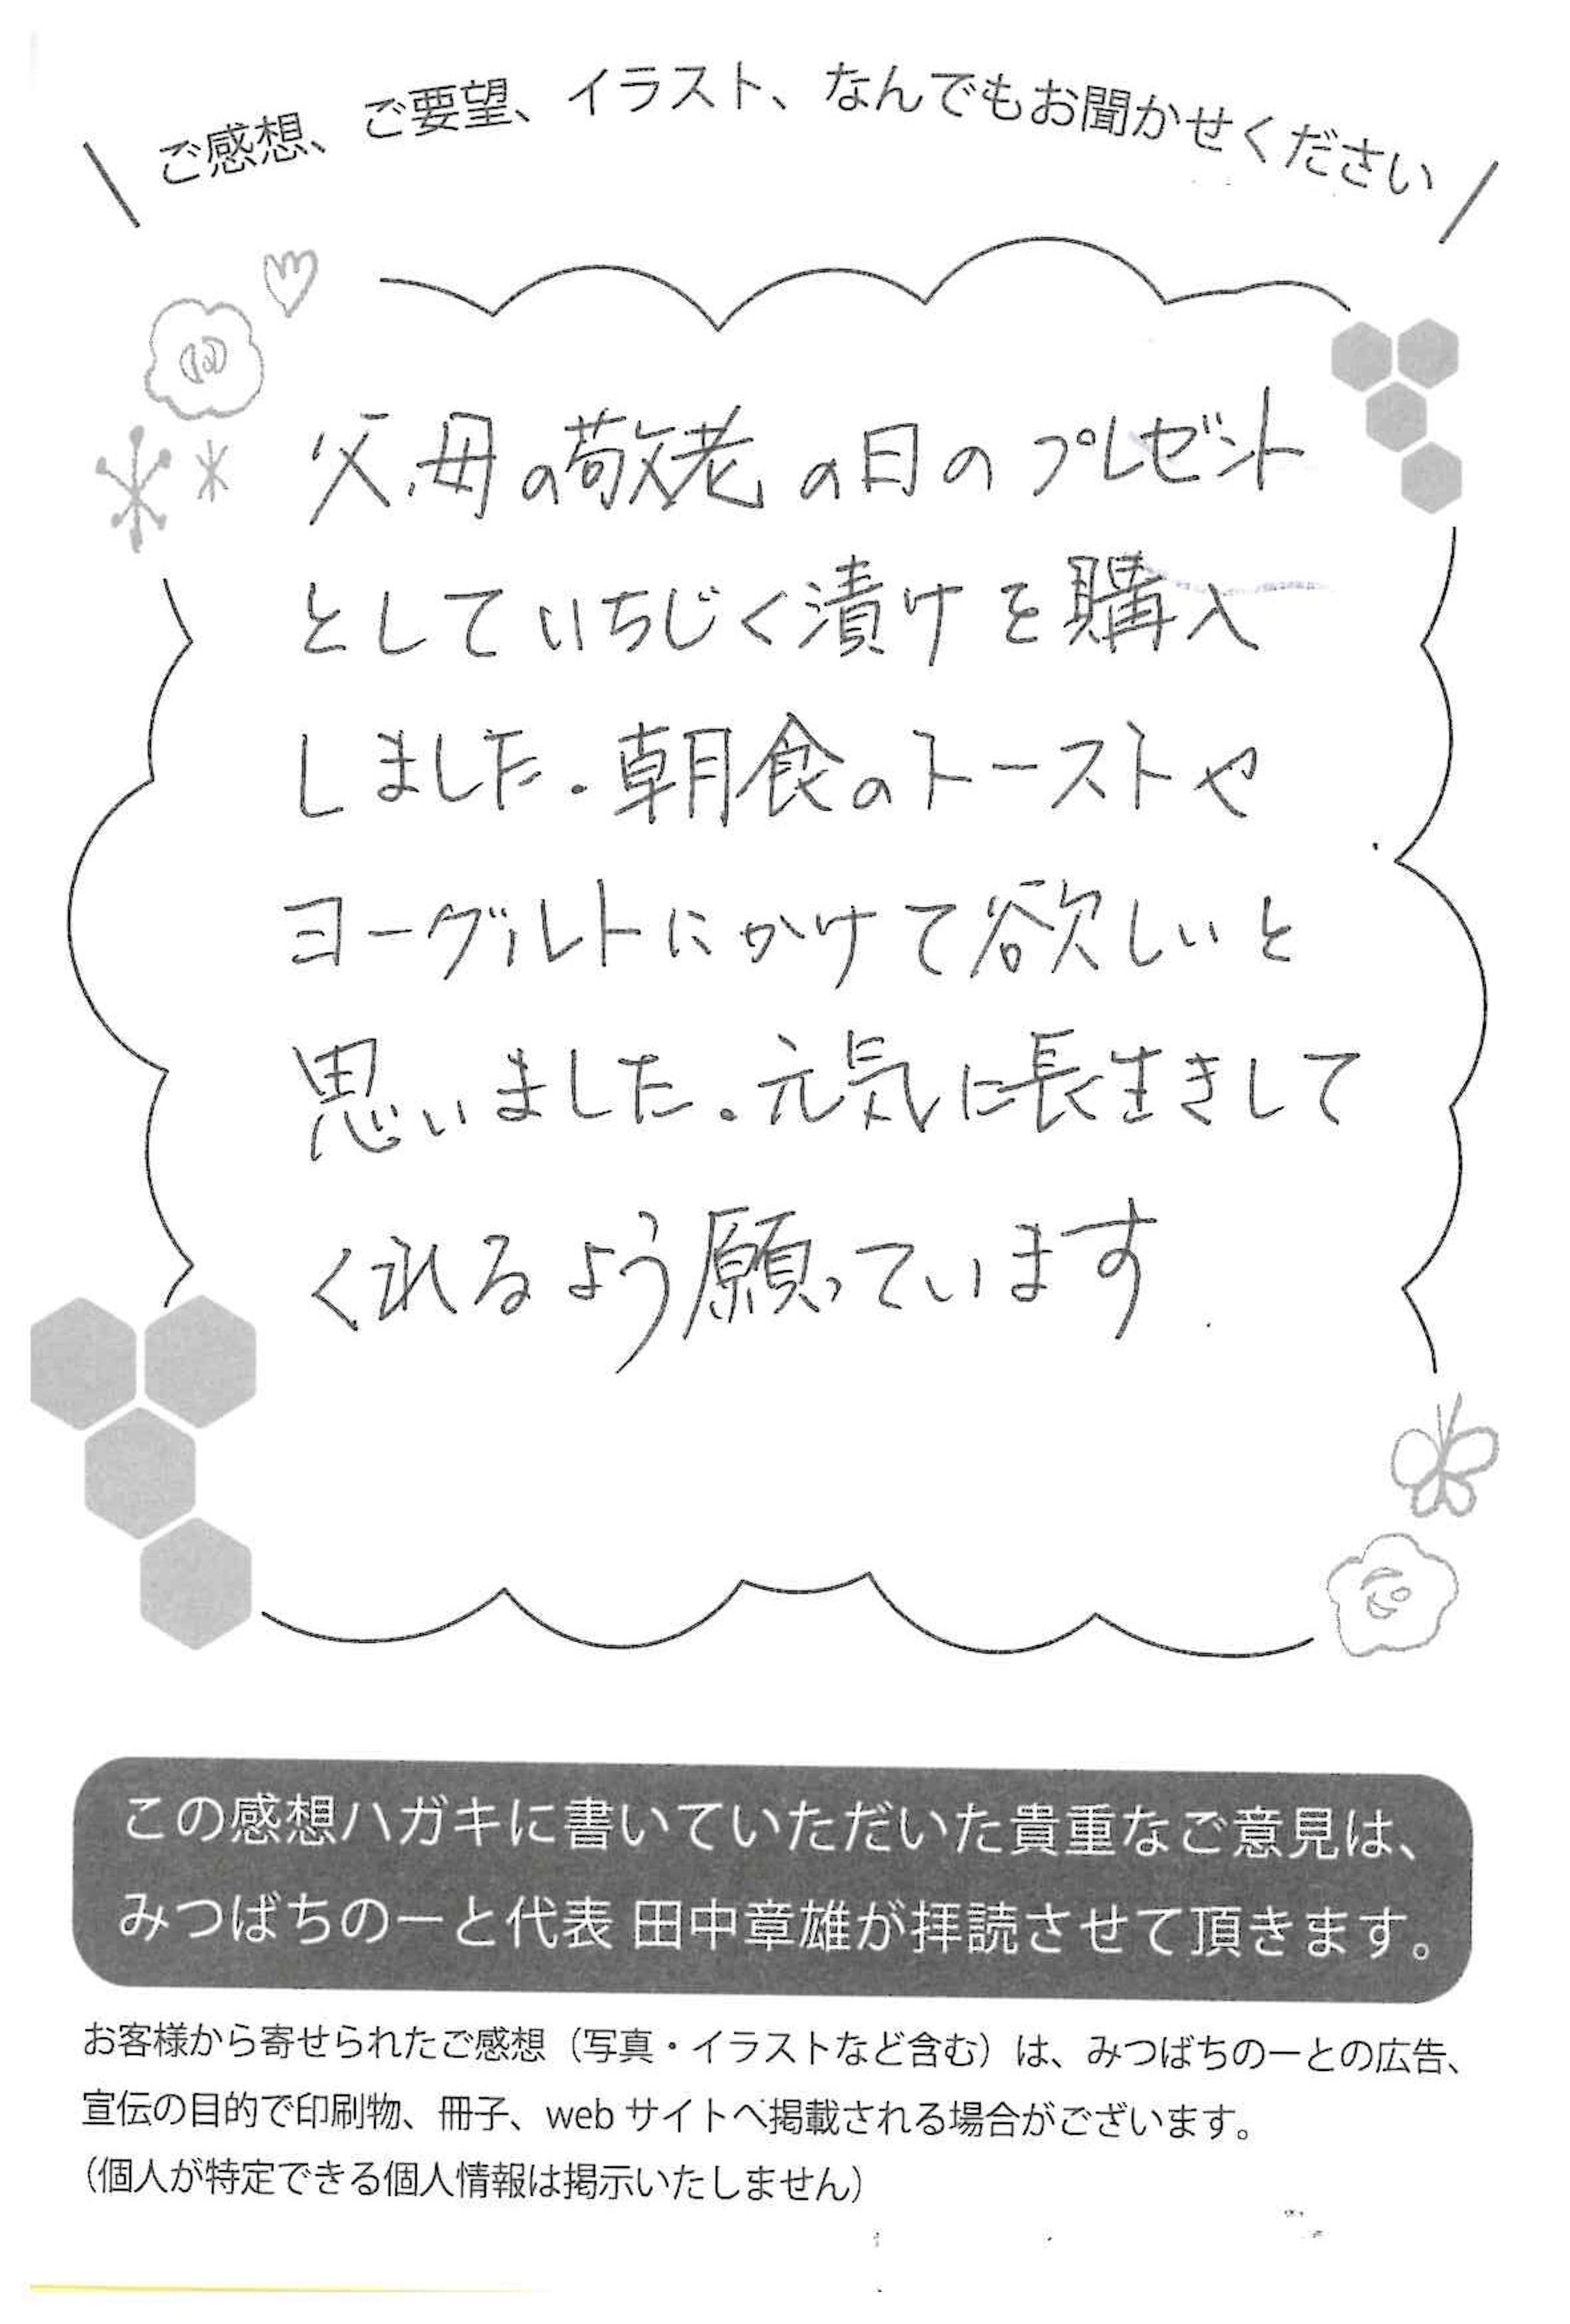 ご感想、ご要望、イラスト、なんでもお聞かせください
父、母の敬老の日のプレゼント
としていちじく漬けを購入
しました。朝食のトーストや
ヨーグルトにかけて欲しいと
思いました。元気に長生きして
くれるよう願っています
この感想ハガキに書いていただいた貴重なご意見は、
みつばちのーと代表 田中章雄が拝読させて頂きます。
お客様から寄せられたご感想（写真・イラストなど含む）は、みつばちのーとの広告、
宣伝の目的で印刷物、冊子、web サイトへ掲載される場合がございます。
（個人が特定できる個人情報は掲示いたしません）